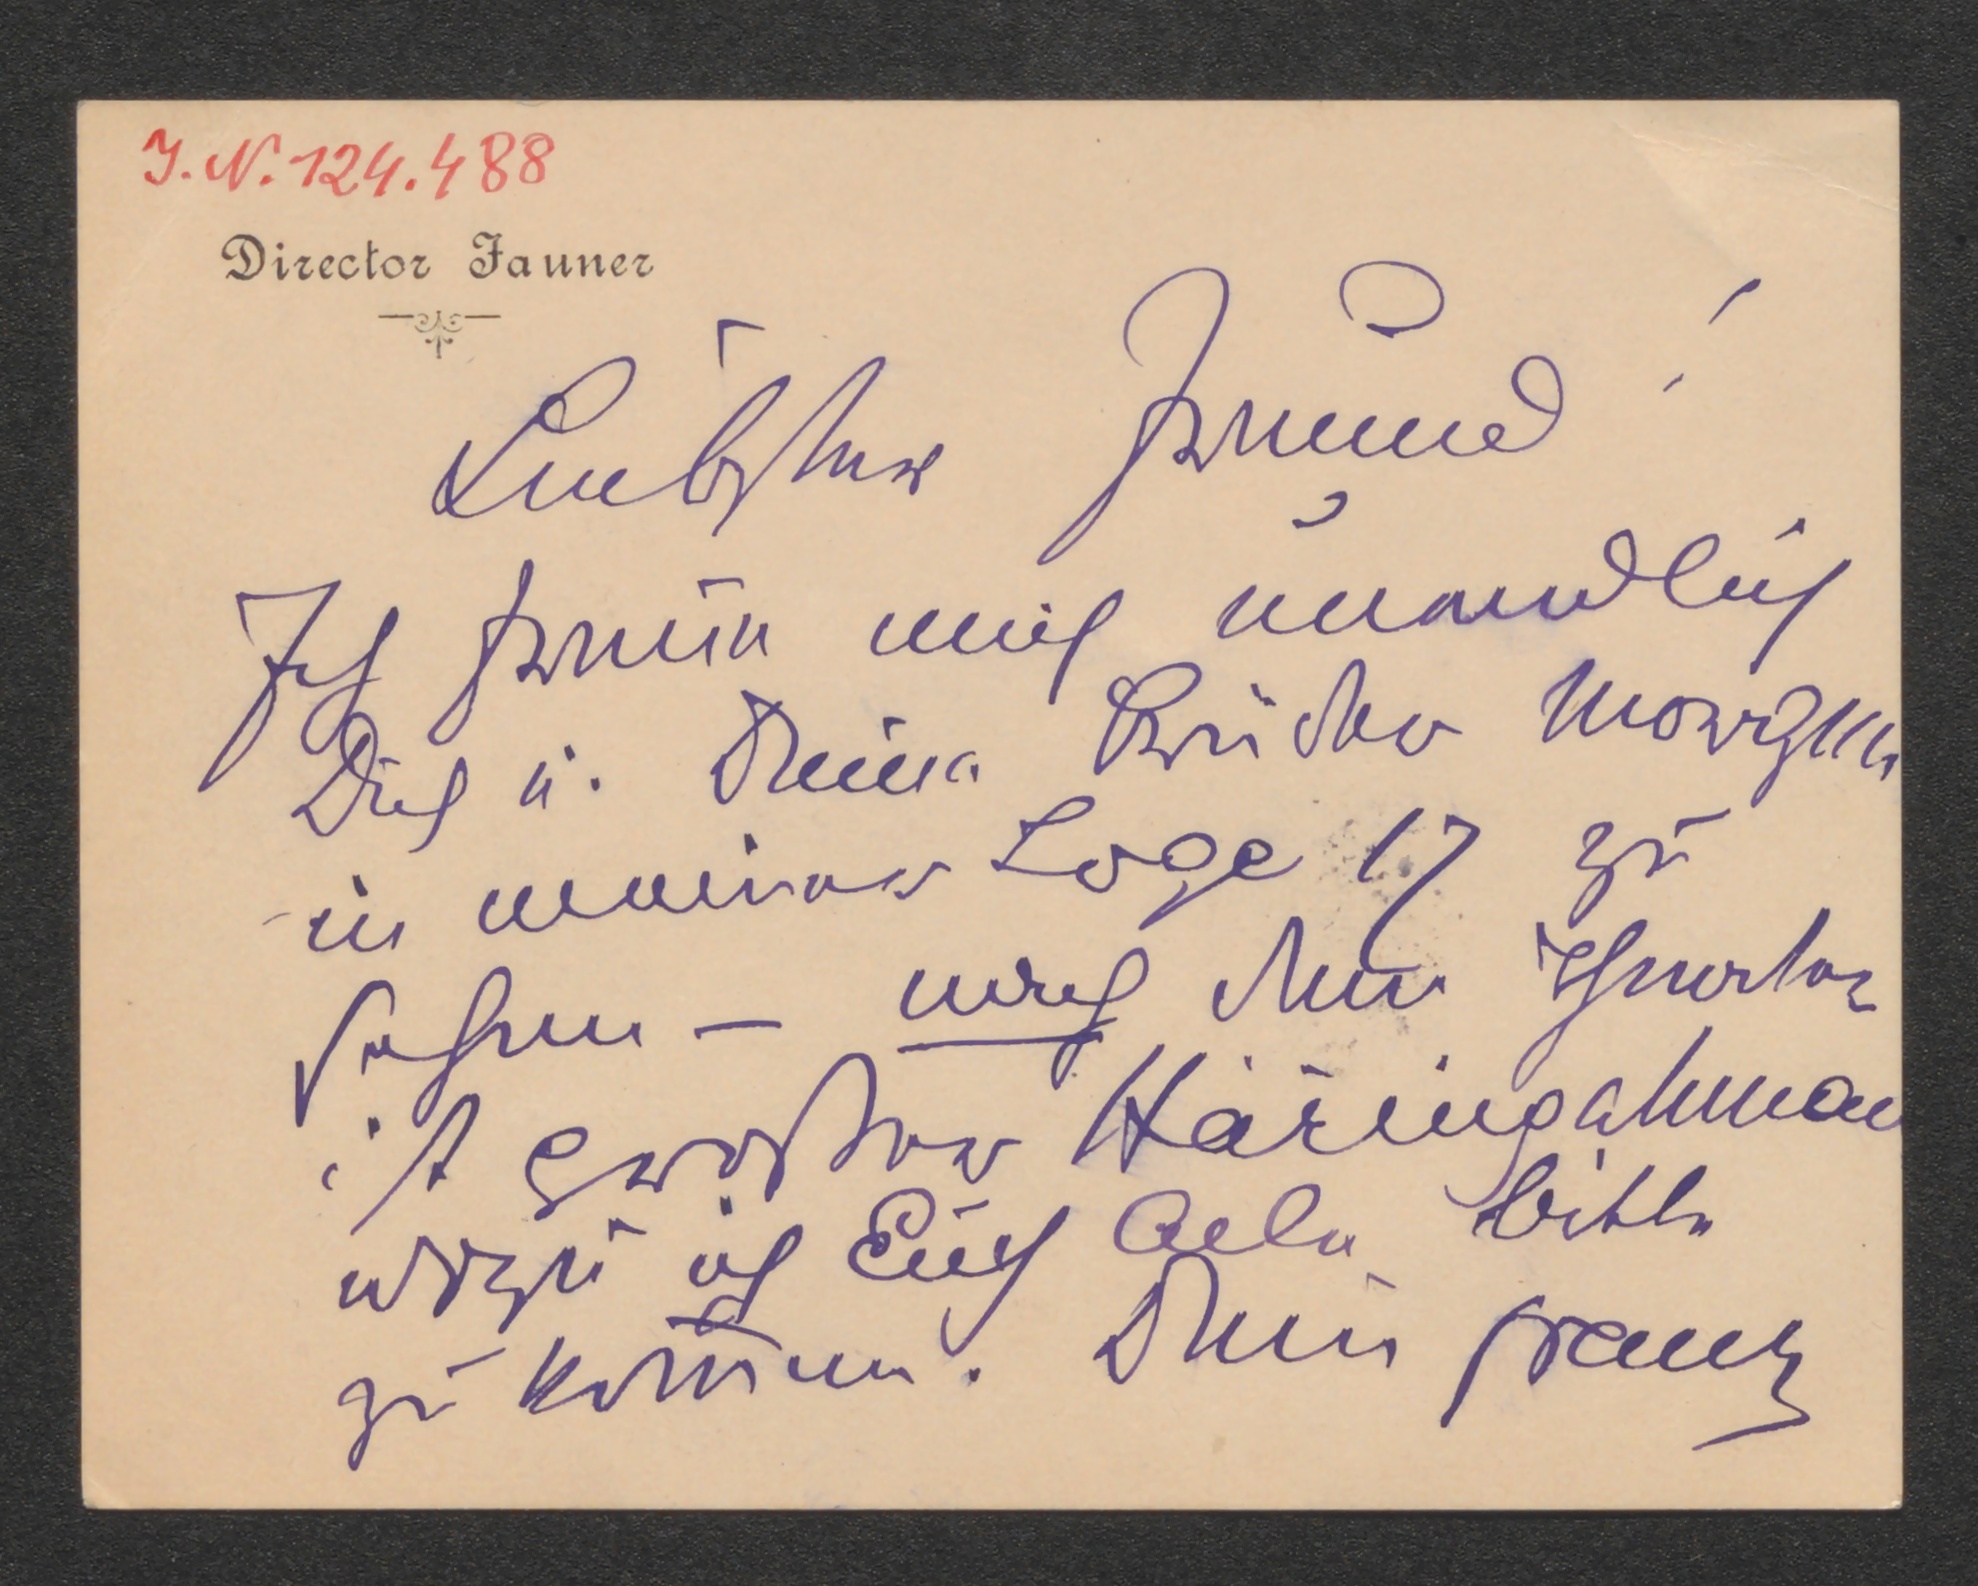 J. N. 124.488
Director Jauner
Liebster Freund!
Ich freue mich unendlich
Dich u. Deine Brüder morgen
in meiner Loge 17 zu
sehen – nach dem Theater
ist grosser Häringschmaus
wozu ich Euch Alle bitte
zu kom̅en. Dein Franz